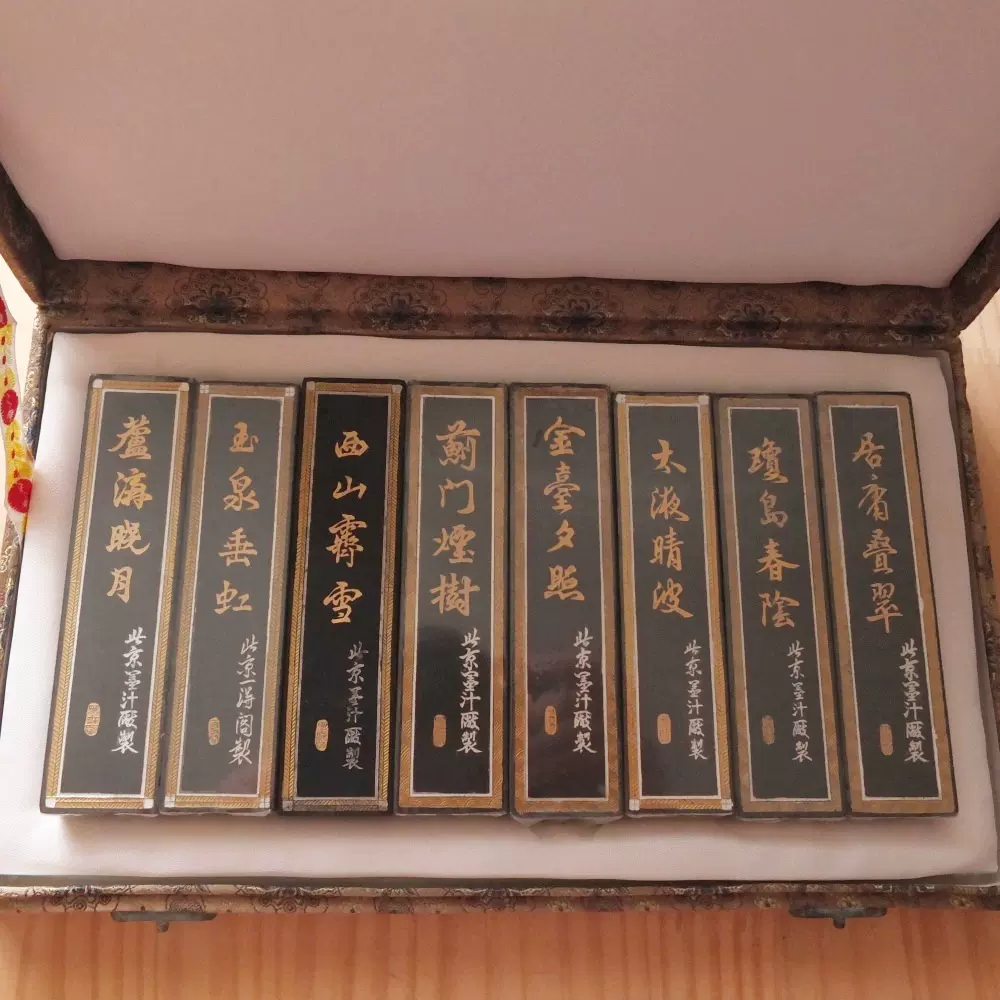 居庸叠翠
北京墨汁厰製
瓊島春陰
北京墨汁厰製
太液晴波
北京墨汁厰製
金臺夕照
北京墨汁厰製
薊门煙樹
北京墨汁厰製
西山霽雪
北京墨汁厰製
玉泉垂虹
北京一得阁製
蘆溝晓月
北京墨汁厰製